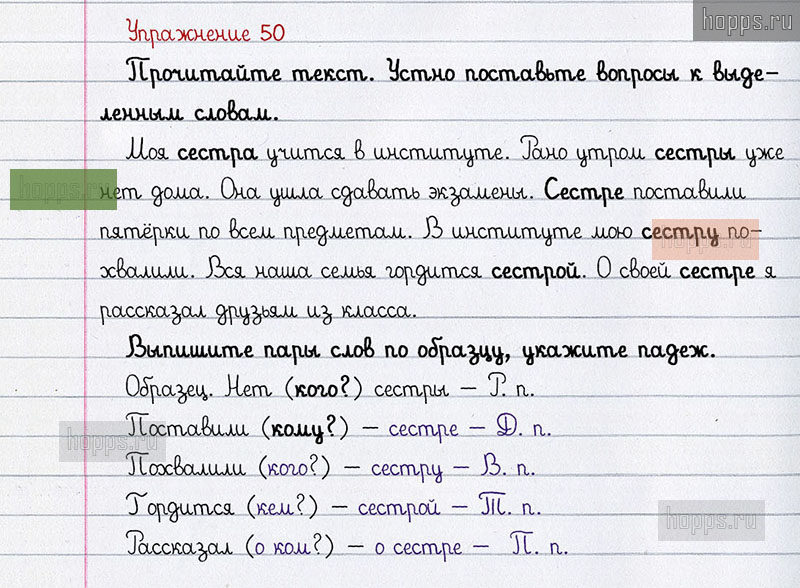 hopps.ru
Упражнение 50
Прочитайте текст. Устно поставьте вопросы к выде-
ленным словам.
Моя сестра учится в институте. Рано утром сестры уже
нет дома. Она ушла сдавать экзамены. Сестре поставили
hopps.ru
пятёрки по всем предметам. В институте мою сестру по-
hopps.ru
хвалили. Вся наша семья гордится сестрой. О своей сестре я
рассказал друзьям из класса.
Выпишите пары слов по образцу, укажите падеж.
Образец. Нет (кого?) сестры – Р. п.
Поставили (кому?) – сестре – Д. п.
hopps.ru
Похвалили (кого?) – сестру – В. п.
Гордится (кем?) – сестрой – Т. п.
hopps.ru
Рассказал (о ком?) – о сестре – П. п.